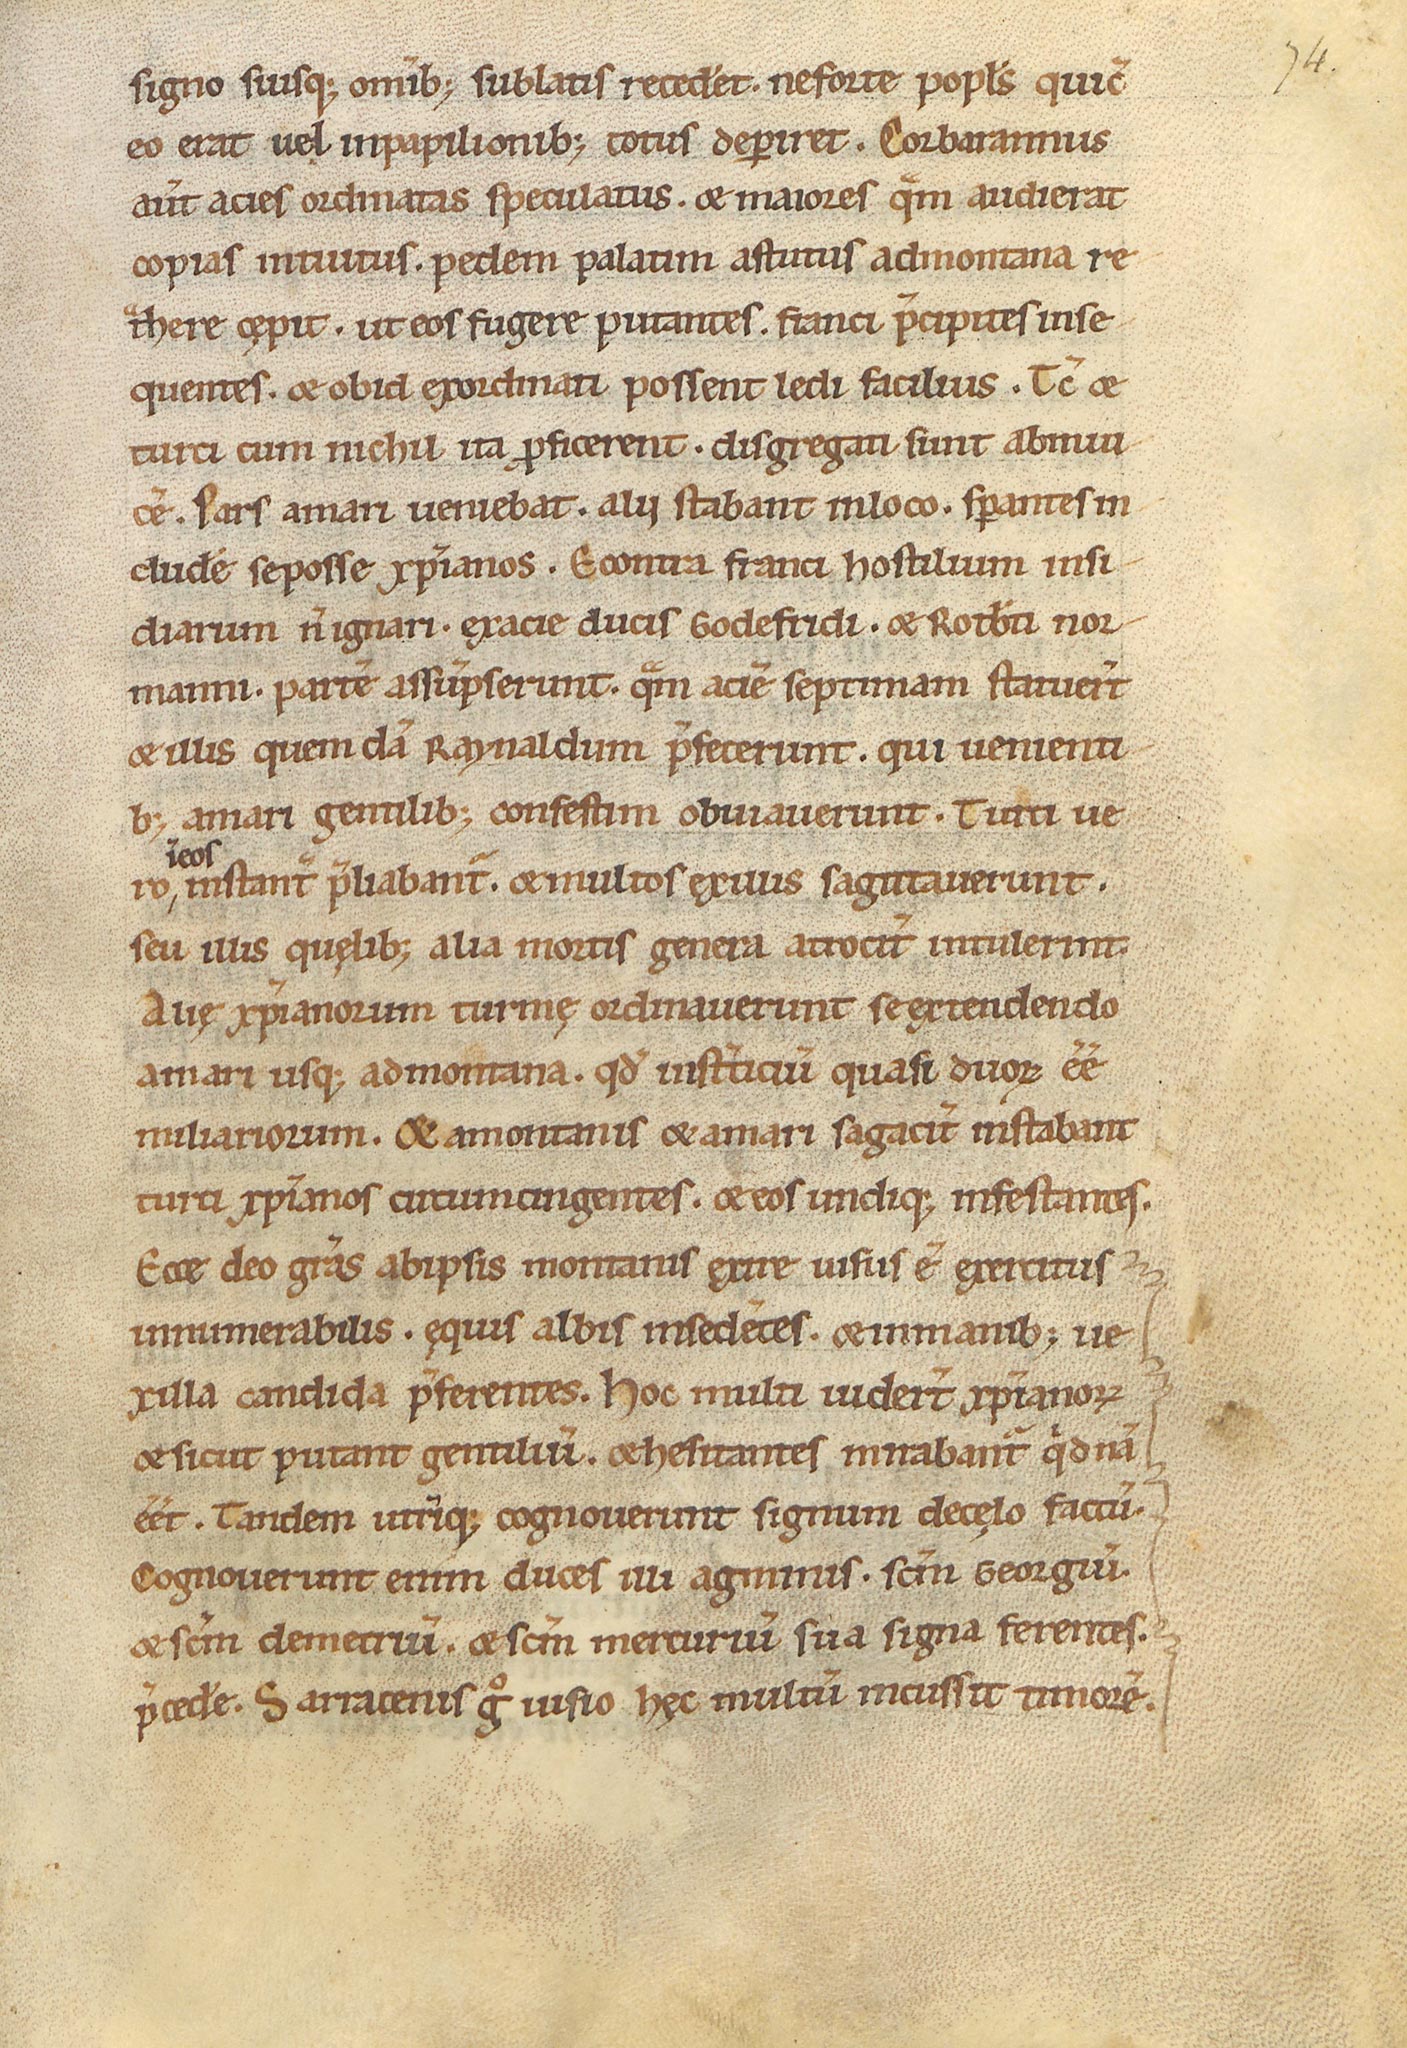 74.
signo suisq; omīb; sublatis reced̄et. neforte popl̄s quic̄
eo erat uel inpapilionib; totus depiret. Corbarannus
aūt acies ordinatas speculatus. & maiores qm̄ audierat
copias intuitus. pedem palatim astutus admontana re-
there cępit. ut eos fugere putantes. franci p̄cipites inse-
quentes. & obid exordinati possent ledi facilius. Tc̄ &
turci cum nichil ita ꝓficerent. disgregati sunt abinui-
cē. Pars amari ueniebat. alij stabant inloco. spantes in-
clud̄e seposse xp̄ianos. Econtra franci hostilium insi-
diarum n̄ ignari. exacie ducis Godefridi. & Rotb̄ti nor-
manni. partē assūpserunt. qm̄ aciē septimam statuer̄t
& illis quem dā Raynaldum p̄fecerunt. qui uenienti-
b; amari gentilib; confestim obuiauerunt. Turci ue
īeos
ro, instant̄ p̄liabant̄. & multos exiuis sagittauerunt.
seu illis quęlib; alia mortis genera atrocit̄ intulerunt.
Alię xp̄ianorum turmę ordinauerunt se extendendo
amari usq; admontana. qd̄ inst̄ticiū quasi duoꝝ ēē
miliariorum. & amontanis & amari sagacit̄ instabant
turci xp̄ianos circumcingentes. & eos undiq; infestantes.
Ecce deo grās abipsis montanis exire uisus ē exercitus
innumerabilis. ęquis albis insedētes. & inmanib; ue
xilla candida p̄ferentes. Hoc multi uider̄t xp̄ianoꝝ
& sicut putant gentiliū. & hesitantes mirabant̄ qd nā
ēēt. Tandem utriq; cognouerunt signum decęlo factū.
Cognouerunt enim duces illi agminis. scm̄ Georgiū.
& scm̄ demetriū. & scm̄ mercuriū sua signa ferentes.
p̄ced̄e. Sarracenis gͦ uisio hęc multū incussit timorē.